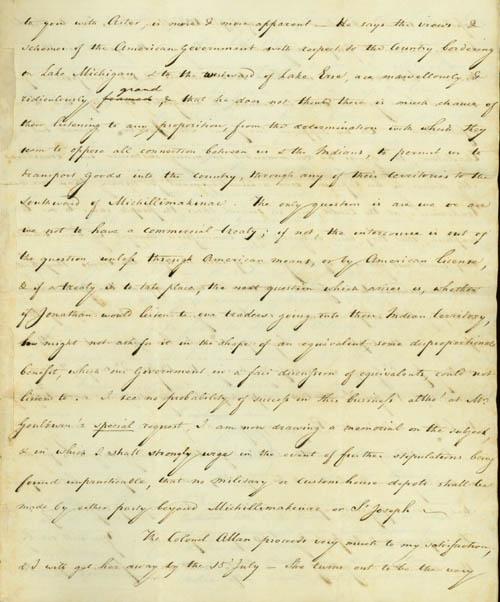 to you with Astor, is more & more apparent — He says the views &
schemes of the American Government with respect to the Country bordering
on Lake Michigan & to the westward of Lake Erie, are marvellously &
ridiculously framed grand, & that he does not think there is much chance of
their listening to any proposition, from the determination with which they
seem to oppose all connection between us & the Indians, to permit us to
transport goods into the country, through any of their territories to the
Southward of Michillimakinac. The only question is are we or are
we not to have a commercial treaty; if not, the intercourse is out of
the question unless through American means, or by American license,
& if a treaty is to take place, the next question which arises is, whether
if Jonathan would listen to our traders going into their Indian territory,
he might not ask for it in the shape of an equivalent some disproportionate
benefit, which our Government in a fair discussion of equivalents, could not
listen to. I see no probability of success in this business altho' at Mr
Goulburn's special request, I am now drawing a memorial on the subject,
& in which I shall strongly urge in the event of further stipulations being
found impracticable, that no military or customhouse depots shall be
made by either party beyond Michillimakinac or St Joseph —
The Colonel Allan proceeds very much to my satisfaction,
& I will get her away by the 15 July — She turns out to be the very